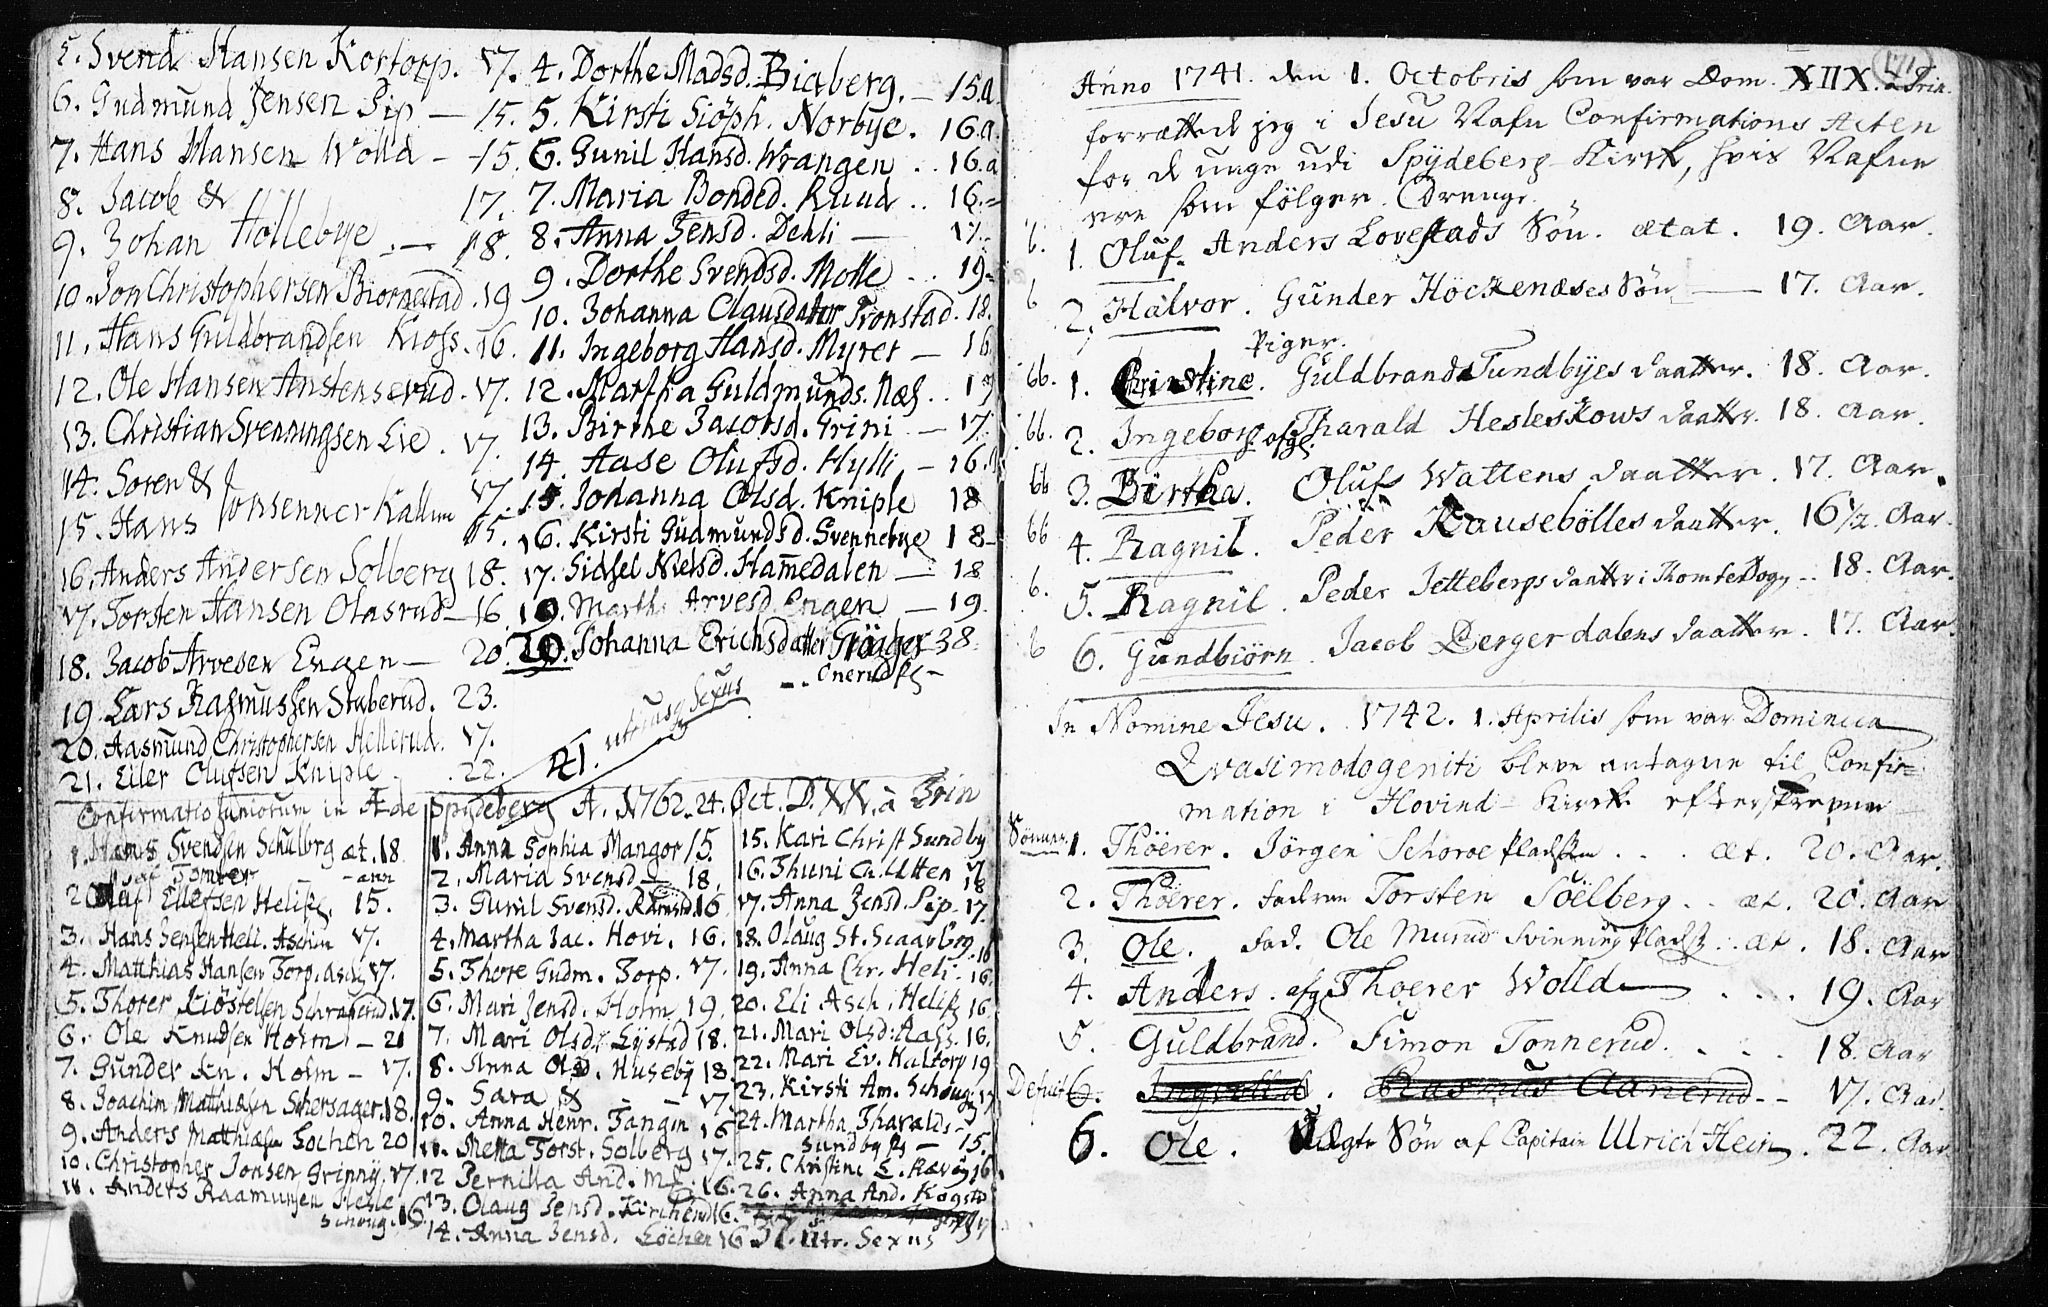 5. Svend Hansen Kortorp. 17.
6. Gudmund Jensen Sip — 15.
7. Hans Hansen Wolld - 15.
8. Jacob & 17.
9. Johan Hollebye . — 18.
10. Jon Christophersen Biornestad . 19
11. Hans Guldbrandsen Kioss. 16.
12. Ole Hansen Anstenserud. 17.
13. Christian Svenningsen Lie . 17.
14. Soren & 17.
15. Hans Jonsenner Kallum 15.
16. Anders Andersen Solberg 18.
17. Torsten Hansen Olasrud — 16.
18. Jacob Arvesen Engen — 20.
19. Lars Rasmussen Staberud. 23.
20. Aasmund Christophersen Hellerud. 17.
21. Eiler Olufsen Kniple . 22.
4. Dorthe Madsd. Biaberg. — 15.a.
5. Kirsti Siöph. Norbye. 16.a.
6. Gunil Hansd. Wrangen . . 16.a
7. Maria Bonded. Ruud . . 16.
8. Anna Jensd. Dehli — 17.
9. Dorthe Svendsd. Molle . . 19
10. Johanna Clausdatter Tronstad. 18.
11. Ingeborg Hansd. Myrer — 16
12. Martha Guldmunds. Næs . . 17
13. Birthe Jacobsd. Grini — 17.
14. Aase Olufsd. Hylli — 16.
15. Jodanna Olsd. Kniple 18
16. Kirsti Gudmundsd. Svennebye 18
17. Sidsel Nielsd. Hamedalen — 18
19. Marth. Arvesd. Engen — 19.
20. Johanna Erichsdatter 38.
Onerud
41. utriusq Sexus
Confirmatio Juniorum in Æde Spydeberg A. 1762. 24. Oct. D. XX. à Trin
1. Hans Svendsen Schulbrg æt. 18.
ann
2. Oluf Ellefsen Heli 15.
3. Hans Jensen Heli. Aschim 17.
4. Matthias Hansen Torp. asch 17.
5. Thorer Kiöstelsen 17.
6. Ole Knudsen Holm — 21
7. Gunder Kn. Holm — 17.
8. Joachim Matthiesen Schersager. 18.
9. Anders Matthiesen Lochen 20
10. Christopher Jonsen Grinny. 17.
11. Anders Raamunsen Hesle
Schoug. 16.
1. Anna Sophia Mangor 15.
2. Maria Svensd — 18.
3. Gunil Svensd. 16
4. Martha Jac. Hovi. 16.
5. Thore Gudm. Torp. 17.
6. Mari Jensd. Holm 19.
7. Mari Olsd. Lystad 18.
8. Anna Olsd. Huseby 18
9. Sara & — - 17.
10. Anna Henr. Tangen 16
11. Metta Torst. Solberg 17.
12 Pernilla And. 16.
13. Olaug Jensd. Kircherud 16.
14. Anna Jensd. Löchen 16
15. Kari Christ Sundby
16. Thuni Ch. Utten 17
18
17. Anna Jensd. Sip. 17.
18. Olaug St. Scaarbrg. 16
19. Anna Chr. Heli. 16.
20. Eli Asch. Heli 16.
21. Mari Olsd. Aass. 16.
22. Mari Ev. Kaltorp 19
23. Kirsti Am. Schoug 17
24. Martha Tharalds
Sundby — 15.
25. Christine E. Rævög 16
26. Anna And. Kogstd
37. utr. Sexus
171
Anno 1741. den 1. Octobris som var Dom. XIIX. a Trin.
forrættede jeg i Jesu Nafn Confirmations Acten
for de unge udi Spydeberg Kirke, hvis Nafne
ere som fölger. Drenge.
6. 1. Oluf. Anders Lovestads Sön. ætat. 19. Aar.
6 2. Halvor. Gunder Höckenæses Sön — 17. Aar.
Piger.
66. 1. Christine. Guldbrands Tundbyes daatter. 18. Aar.
66. 2. Ingeborg afg. Tharald Hesleskows daatter. 18. Aar.
66 3. Birtha. Oluf Wattens daatter. 17. Aar.
66 4. Ragnil. Peder Rausebölles daatter. 16 1/2. Aar.
6. 5. Ragnil. Peder Jettebergs daatter i Thomter Sogn -- 18. Aar.
6 6. Gundbiörn. Jacob Bergerdalens daatter. 17. Aar.
In Nomine Jesu. 1742. 1. Aprilis som var Dominica
Qvasimodogeniti bleve antagne til Confir=
mation i Hovind Kirke efterskrevne
Sönner. 1. Thöerer. Jörgen Schoroe . . . æt. 20. Aar.
2. Thöerer. faderen Torsten Söelberg . . æt. 20. Aar
3. Ole. fad. Ole Murud Svinning . . æt. 18. Aar
4. Anders. afg. Thoerer Wolld . . . 19. Aar
5. Guldbrand. Simon Tonnerud. . . . 18. Aar
Defuit 6. Ingvold. Rasmus Aanerud -- 17. Aar.
6. Ole. Sön af Capitain Ulrich Hein. 22. Aar